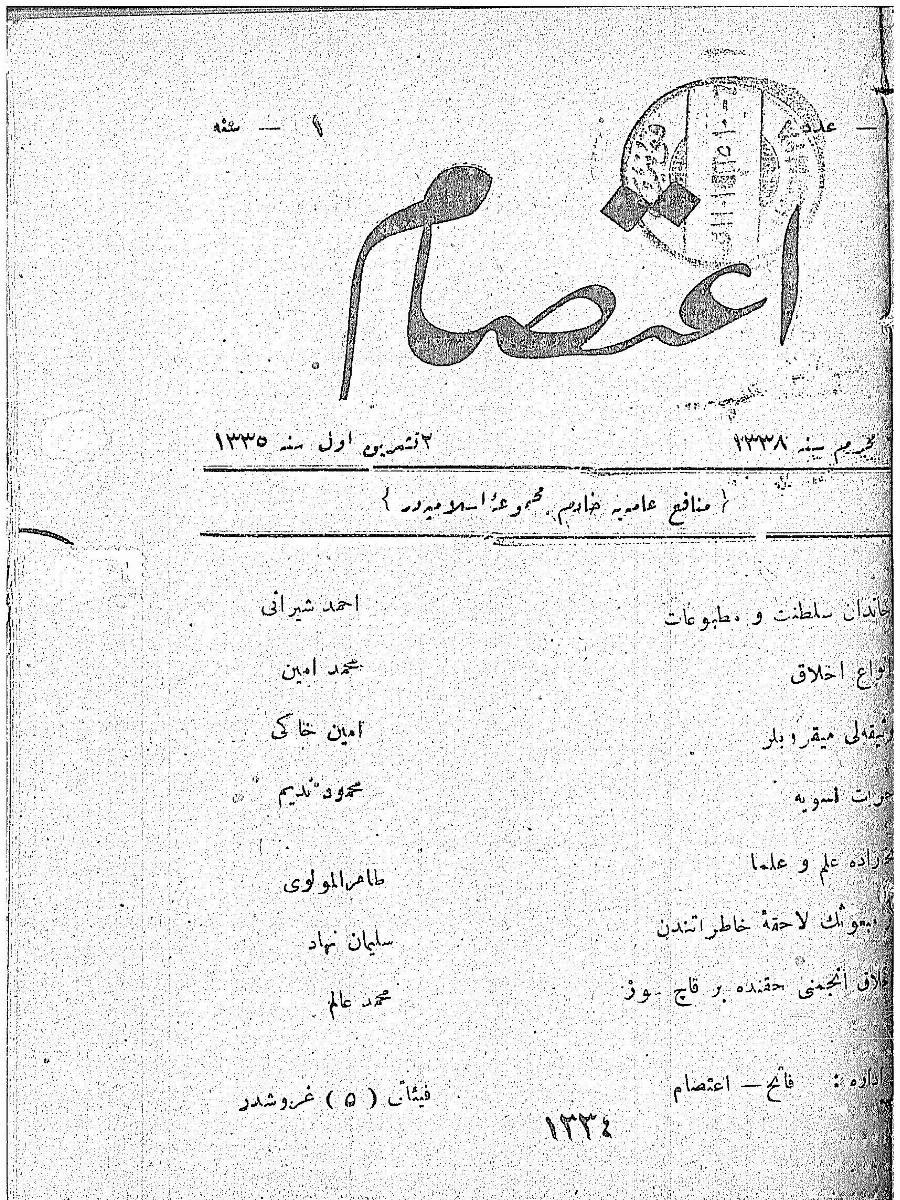 عدد — سنه — ١
اعتصام
محرم سنه ١٣٣٨ ٢ تشرين اول سنه ١٣٣٥
{ منافع عامه‌يه خادم مجموعۀ اسلاميه‌در }
خاندان سلطنت و مطبوعات احمد شيرانى
انواع اخلاق محمد امين
ميقروبلر امين خاكى
نسويه محمود نديم
علم و علما طاهرالمولوى
لاحقۀ خاطراتندن سليمان نهاد
انجمنى حقنده بر قاچ سوز محمد عالم
اداره : فاتح — اعتصام فيئاتى ( ٥ ) غروشدر
١٣٣٤